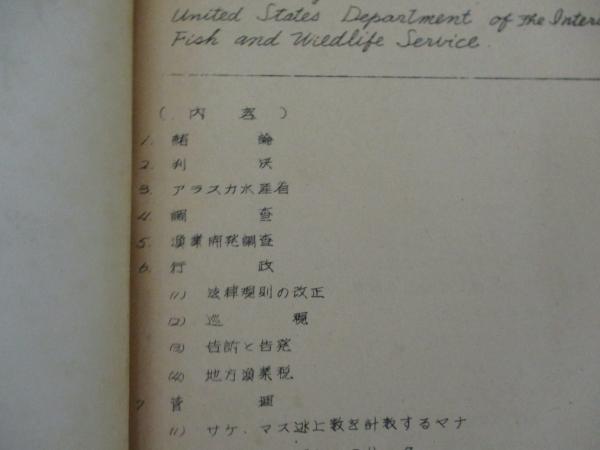 United States Department of The Inter
Fish and Wildlife Service.
( 内 容 )
1. 緒 論
2. 判 决
3. アラスカ水産省
4. 調 査
5. 漁業開発調査
6. 行 政
(1) 法律規則の改正
(2) 巡 視
(3) 告訴と告発
(4) 地方漁業税
7 管 理
(1) サケ、マス遡上数を計数するマナ